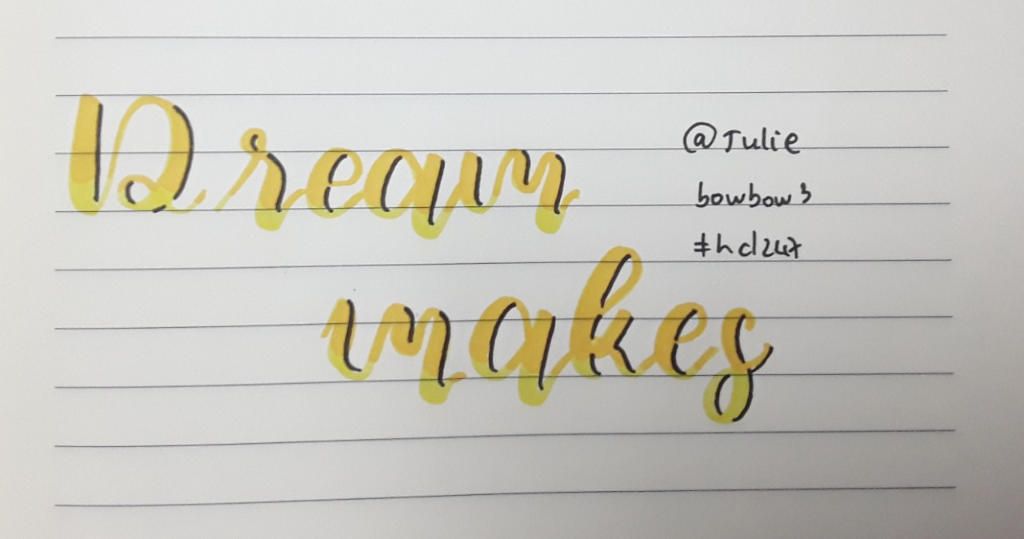 Dream
makes
@Julie
bowbow3
#hd247